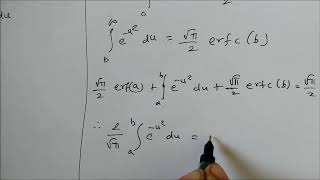 du
∫_b^∞ e^{-u²} du = √π/2 erfc(b)
√π/2 erf(a) + ∫_a^b e^{-u²} du + √π/2 erfc(b) = √π/2
∴ 2/√π ∫_a^b e^{-u²} du =